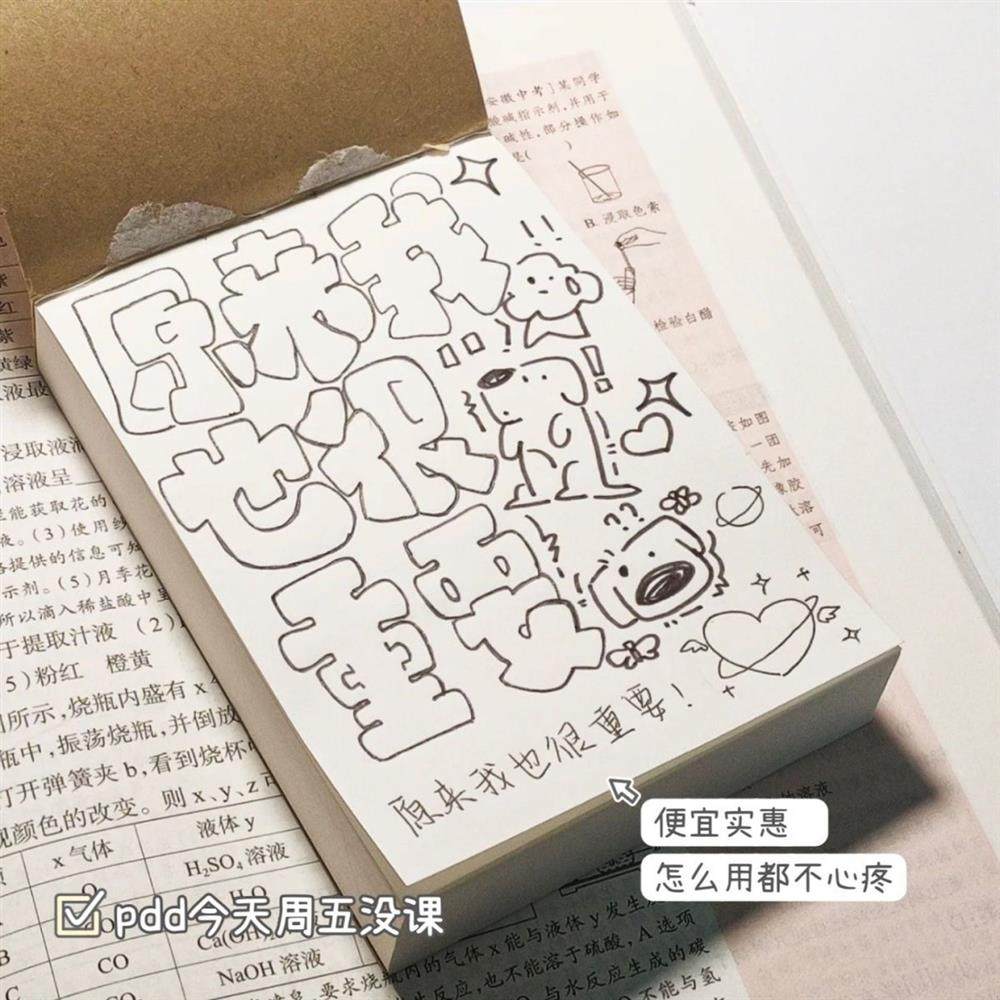 安徽中考]某同学
酸碱指示剂,并用于
碱性,部分操作如
是(    )
B. 浸取色素
检验白醋
原来我
也很
重要
!!
??
原来我也很重要!
便宜实惠
怎么用都不心疼
pdd今天周五没课
红
紫
黄绿
浸取液
溶液呈
能获取花的
液。(3)使用
提供的信息可知
示剂。(5)月季花
所以滴入稀盐酸中呈
于提取汁液 (2)
5)粉红 橙黄
所示,烧瓶内盛有 x
瓶中,振荡烧瓶,并倒放
打开弹簧夹 b,看到烧杯
现颜色的改变。则 x、y、z 可
x 气体 液体 y
H₂SO₄ 溶液
H₂O
B CO Ca(OH)₂
NaOH 溶液
如图
一团
先加
橡胶
溶
可
的溶液
能与液体 y 发生
的气体 x 能与液体 y 发生
反应,也不能溶于硫酸,A 选项
与水反应生成的碳
不能与氢